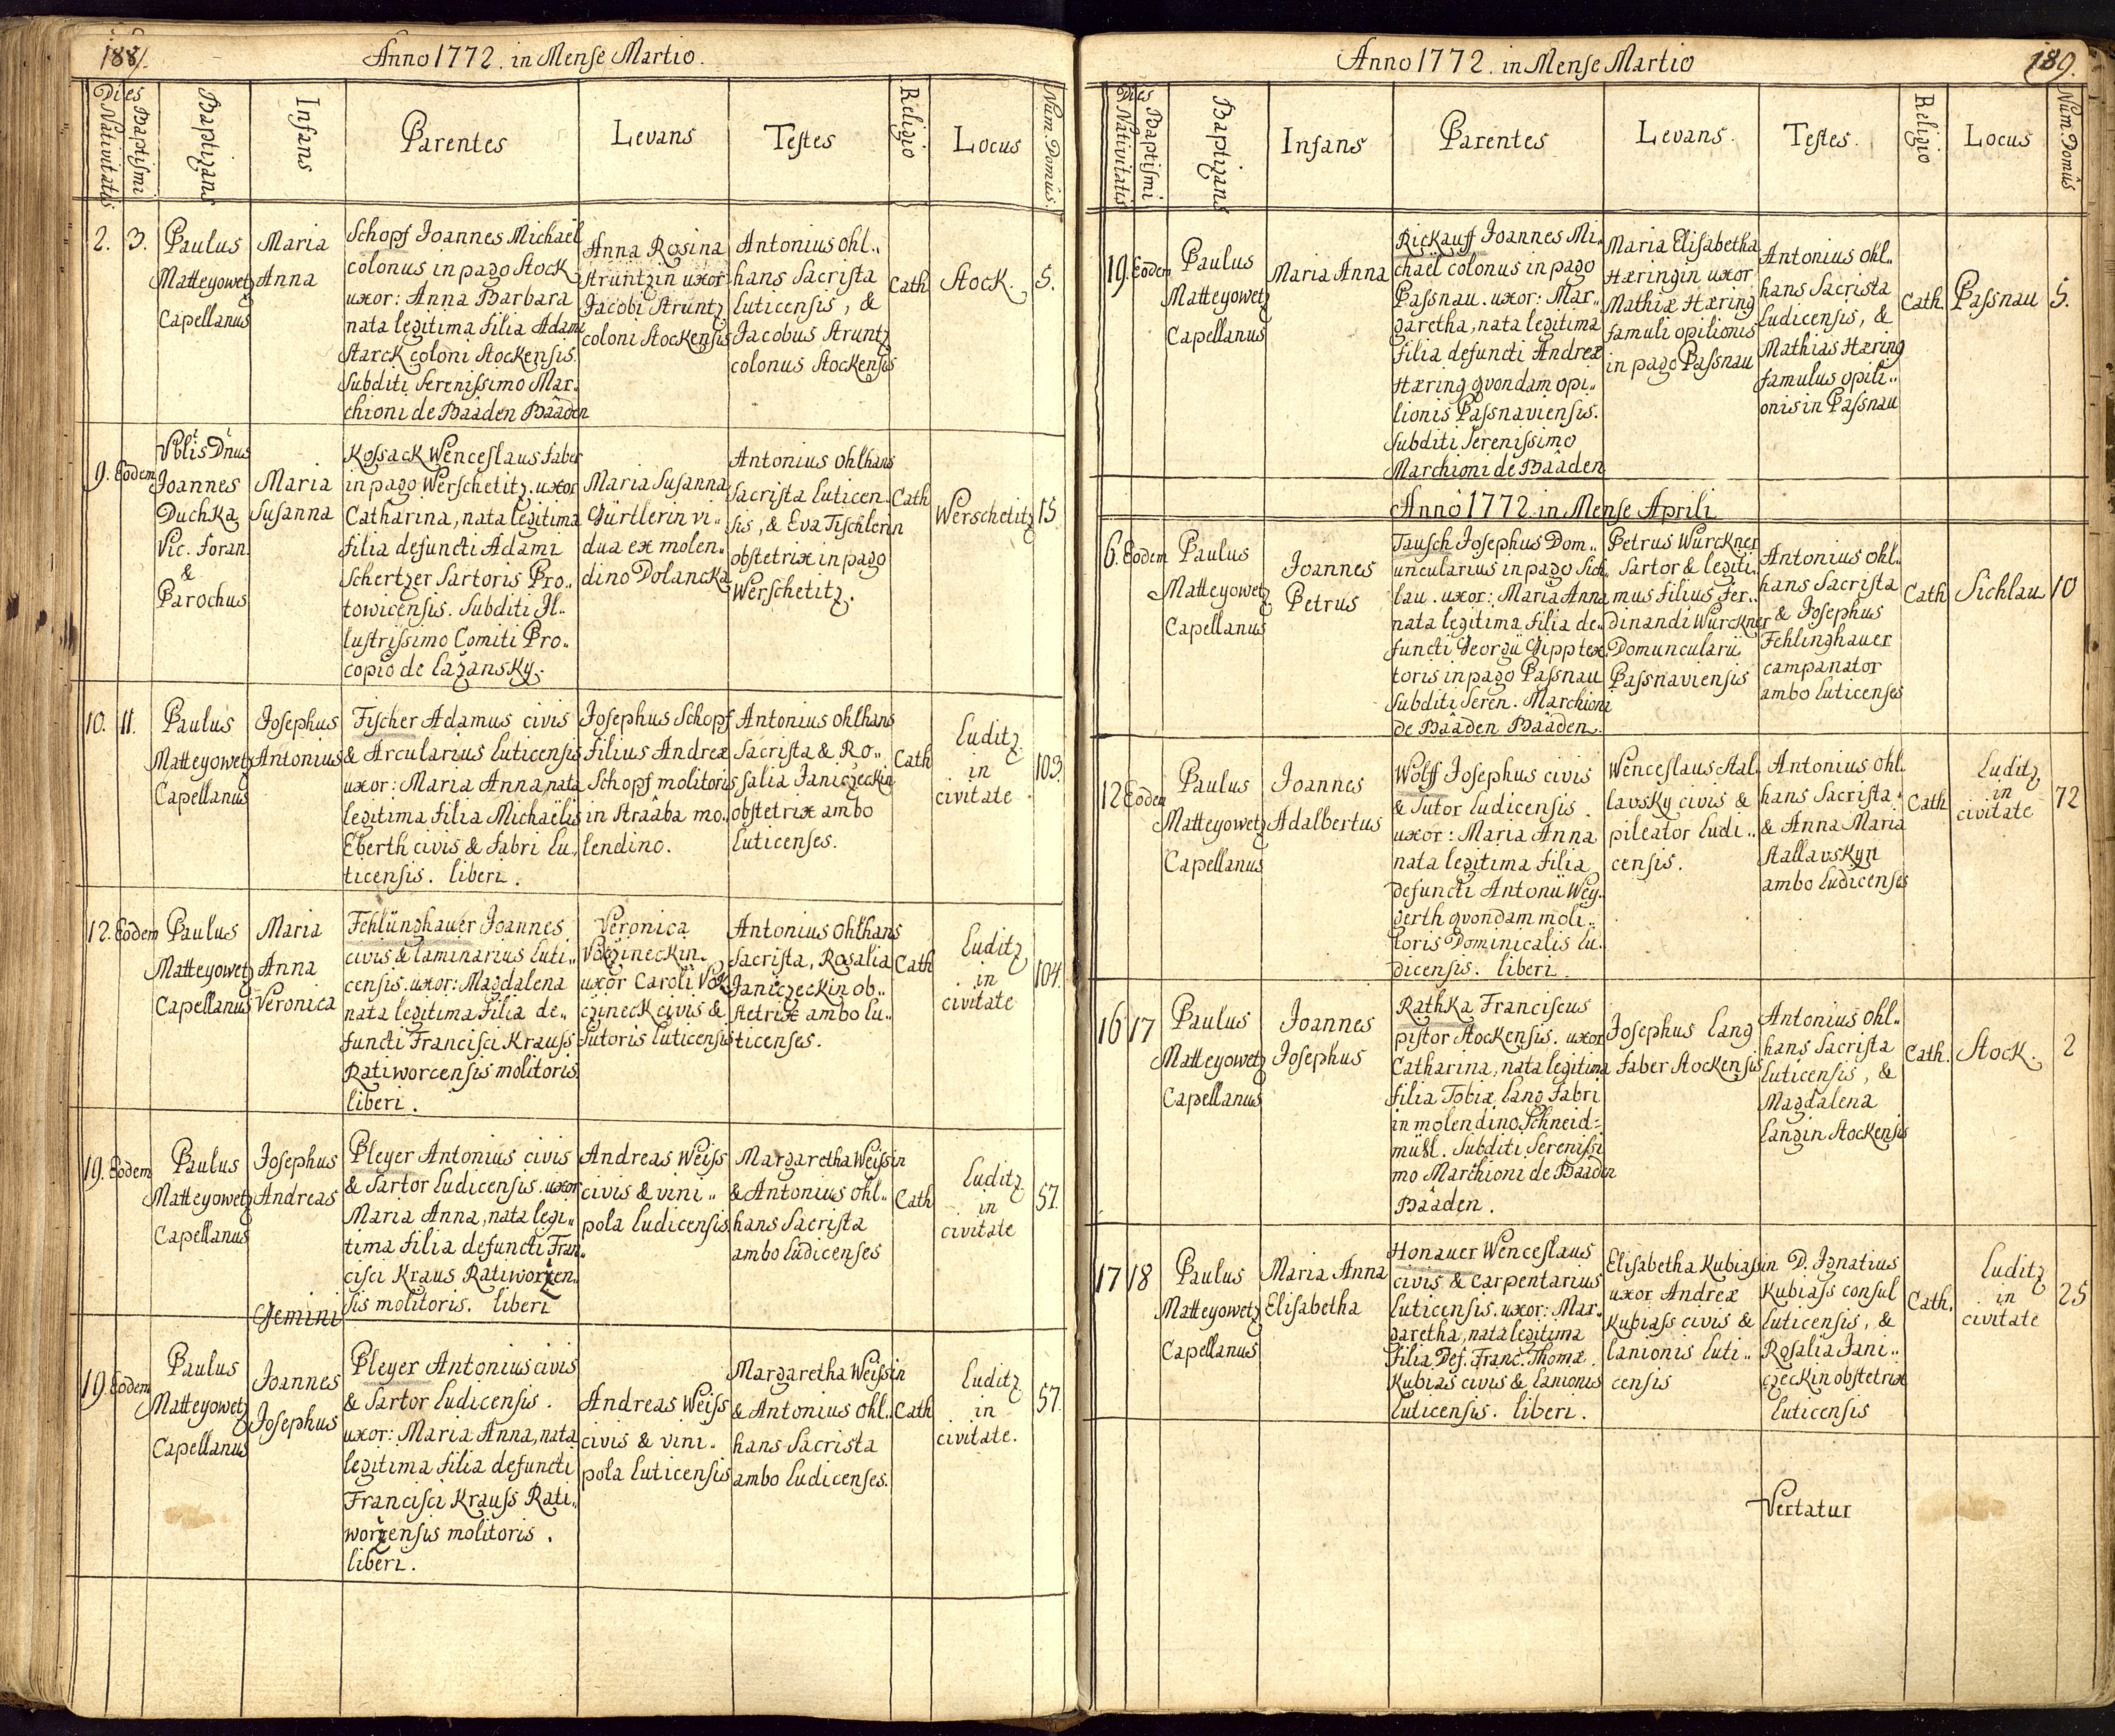 188.
Anno 1772. in Mense Martio.
Dies
Nativitatis
Baptismi
Baptizans
Infans
Parentes
Levans
Testes
Religio
Locus
Num. Domûs.
2.
3.
Paulus
Matteyowetz
Capellanus
Maria
Anna
Schopf Joannes Michaël
colonus in pago Stock
uxor: Anna Barbara
nata legitima filia Adami
Starck coloni Stockensis.
Subditi Serenissimo Mar..
chioni de Baâden Baâden
Anna Rosina
Struntzin uxor
Jacobi Struntz
coloni Stockensis
Antonius Ohl..
hans Sacrista
Luticensis, &
Jacobus Struntz
colonus Stockensis
Cath
Stock.
5.
9.
Eodem
Vblis Dnus
Joannes
Duchka
Vic. foran.
&
Parochus
Maria
Susanna
Kossack Wenceslaus faber
in pago Werschetitz. uxor
Catharina, nata legitima
filia defuncti Adami
Schertzer Sartoris Pro..
towicensis. Subditi Il..
lustrissimo Comiti Pro..
copio de Lažansky.
Maria Susanna
Gürtlerin vi..
dua ex molen..
dino Dolancka
Antonius Ohlhans
Sacrista Luticen
sis, & Eva Tischlerin
obstetrix in pago
Werschetitz.
Cath
Werschetitz
15
10.
11.
Paulus
Matteyowetz
Capellanus
Josephus
Antonius
Fischer Adamus civis
& Arcularius Luticensis
uxor: Maria Anna, nata
legitima filia Michaëlis
Eberth civis & fabri Lu..
ticensis. liberi.
Josephus Schopf
filius Andreæ
Schopf molitoris
in Straâba mo..
lendino.
Antonius Ohlhans
Sacrista & Ro..
salia Janiczeckin
obstetrix ambo
Luticenses.
Cath
Luditz
in
civitate
103.
12.
Eodem
Paulus
Matteyowetz
Capellanus
Maria
Anna
Veronica
Fehlünghauer Joannes
civis & laminarius Luti..
censis. uxor: Magdalena
nata legitima filia de..
functi Francisci Krauss
Ratiworcensis molitoris.
liberi.
Veronica
uxor Caroli
czineck civis &
Sutoris Luticensis
Antonius Ohlhans
Sacrista, Rosalia
Janiczeckin ob..
stetrix ambo Lu..
ticenses.
Cath
Luditz
in
civitate
104.
19.
Eodem
Paulus
Matteyowetz
Capellanus
Josephus
Andreas
Gemini
Pleyer Antonius civis
& Sartor Ludicensis. uxor
Maria Anna, nata legi..
tima filia defuncti Fran..
cisci Kraus Ratiworzen..
sis molitoris. liberi
Andreas Weiss
civis & vini..
pola Ludicensis
Margaretha Weissin
& Antonius Ohl..
hans Sacrista
ambo Ludicenses
Cath
Luditz
in
civitate
57.
19.
Eodem
Paulus
Matteyowetz
Capellanus
Joannes
Josephus
Pleyer Antonius civis
& Sartor Ludicensis.
uxor: Maria Anna, nata
legitima filia defuncti
Francisci Krauss Rati..
worzensis molitoris.
liberi.
Andreas Weiss
civis & vini..
pola Luticensis
Margaretha Weissin
& Antonius Ohl..
hans Sacrista
ambo Ludicenses.
Cath
Luditz
in
civitate.
57.
189.
Anno 1772. in Mense Martio
Dies
Nativitatis
Baptismi
Baptizans
Infans
Parentes
Levans.
Testes.
Religio
Locus
Num. Domûs
19.
Eodem
Paulus
Matteyowetz
Capellanus
Maria Anna
Rickauff Joannes Mi..
chael colonus in pago
Passnau. uxor: Mar..
garetha, nata legitima
filia defuncti Andreæ
Hæring qvondam opi..
lionis Passnaviensis.
Subditi Serenissimo
Marchioni de Baâden
Maria Elisabetha
Hæringin uxor
Mathiæ Hæring
famuli opilionis
in pago Passnau
Antonius Ohl..
hans Sacrista
Ludicensis, &
Mathias Hæring
famulus opili..
onis in Passnau
Cath.
Passnau
5.
Anno 1772. in Mense Aprili
6.
Eodem
Paulus
Matteyowetz
Capellanus
Joannes
Petrus
Tausch Josephus Dom..
uncularius in pago Sich..
lau. uxor: Maria Anna
nata legitima filia de..
functi Georgii Gipp tex..
toris in pago Passnau
Subditi Seren. Marchioni
de Baâden Baâden.
Petrus Würckner
Sartor & legiti..
mus filius Fer..
dinandi Würckner
Domuncularii
Passnaviensis
Antonius Ohl..
hans Sacrista
& Josephus
Fehlinghauer
campanator
ambo Luticenses
Cath
Sichlau
10
12
Eodem
Paulus
Matteyowetz
Capellanus
Joannes
Adalbertus
Wolff Josephus civis
& Sutor Ludicensis.
uxor: Maria Anna
nata legitima filia
defuncti Antonii Wey..
gerth qvondam moli..
toris Dominicalis Lu..
dicensis. liberi.
Wenceslaus Stal..
lavsky civis &
pileator Ludi..
censis.
Antonius Ohl..
hans Sacrista
& Anna Maria
Stallavskyn
ambo Ludicenses
Cath
Luditz
in
civitate
72
16
17
Paulus
Matteyowetz
Capellanus
Joannes
Josephus
Rathka Franciscus
pistor Stockensis. uxor
Catharina, nata legitima
filia Tobiæ Lang fabri
in molendino Schneid=
mühl. Subditi Serenissi
mo Marchioni de Baaden
Baâden.
Josephus Lang
faber Stockensis
Antonius Ohl..
hans Sacrista
Luticensis, &
Magdalena
Langin Stockensis
Cath.
Stock.
2
17
18
Paulus
Matteyowetz
Capellanus
Maria Anna
Elisabetha
Honauer Wenceslaus
civis & carpentarius
Luticensis. uxor: Mar..
garetha, nata legitima
filia Def. Franc. Thomæ.
Kubias civis & lanionis
Luticensis. liberi.
Elisabetha Kubiassin
uxor Andreæ
Kubiass civis &
lanionis Luti..
censis
D. Ignatius
Kubiass consul
Luticensis, &
Rosalia Jani..
czeckin obstetrix
Luticensis
Cath.
Luditz
in
civitate
25
Vertatur